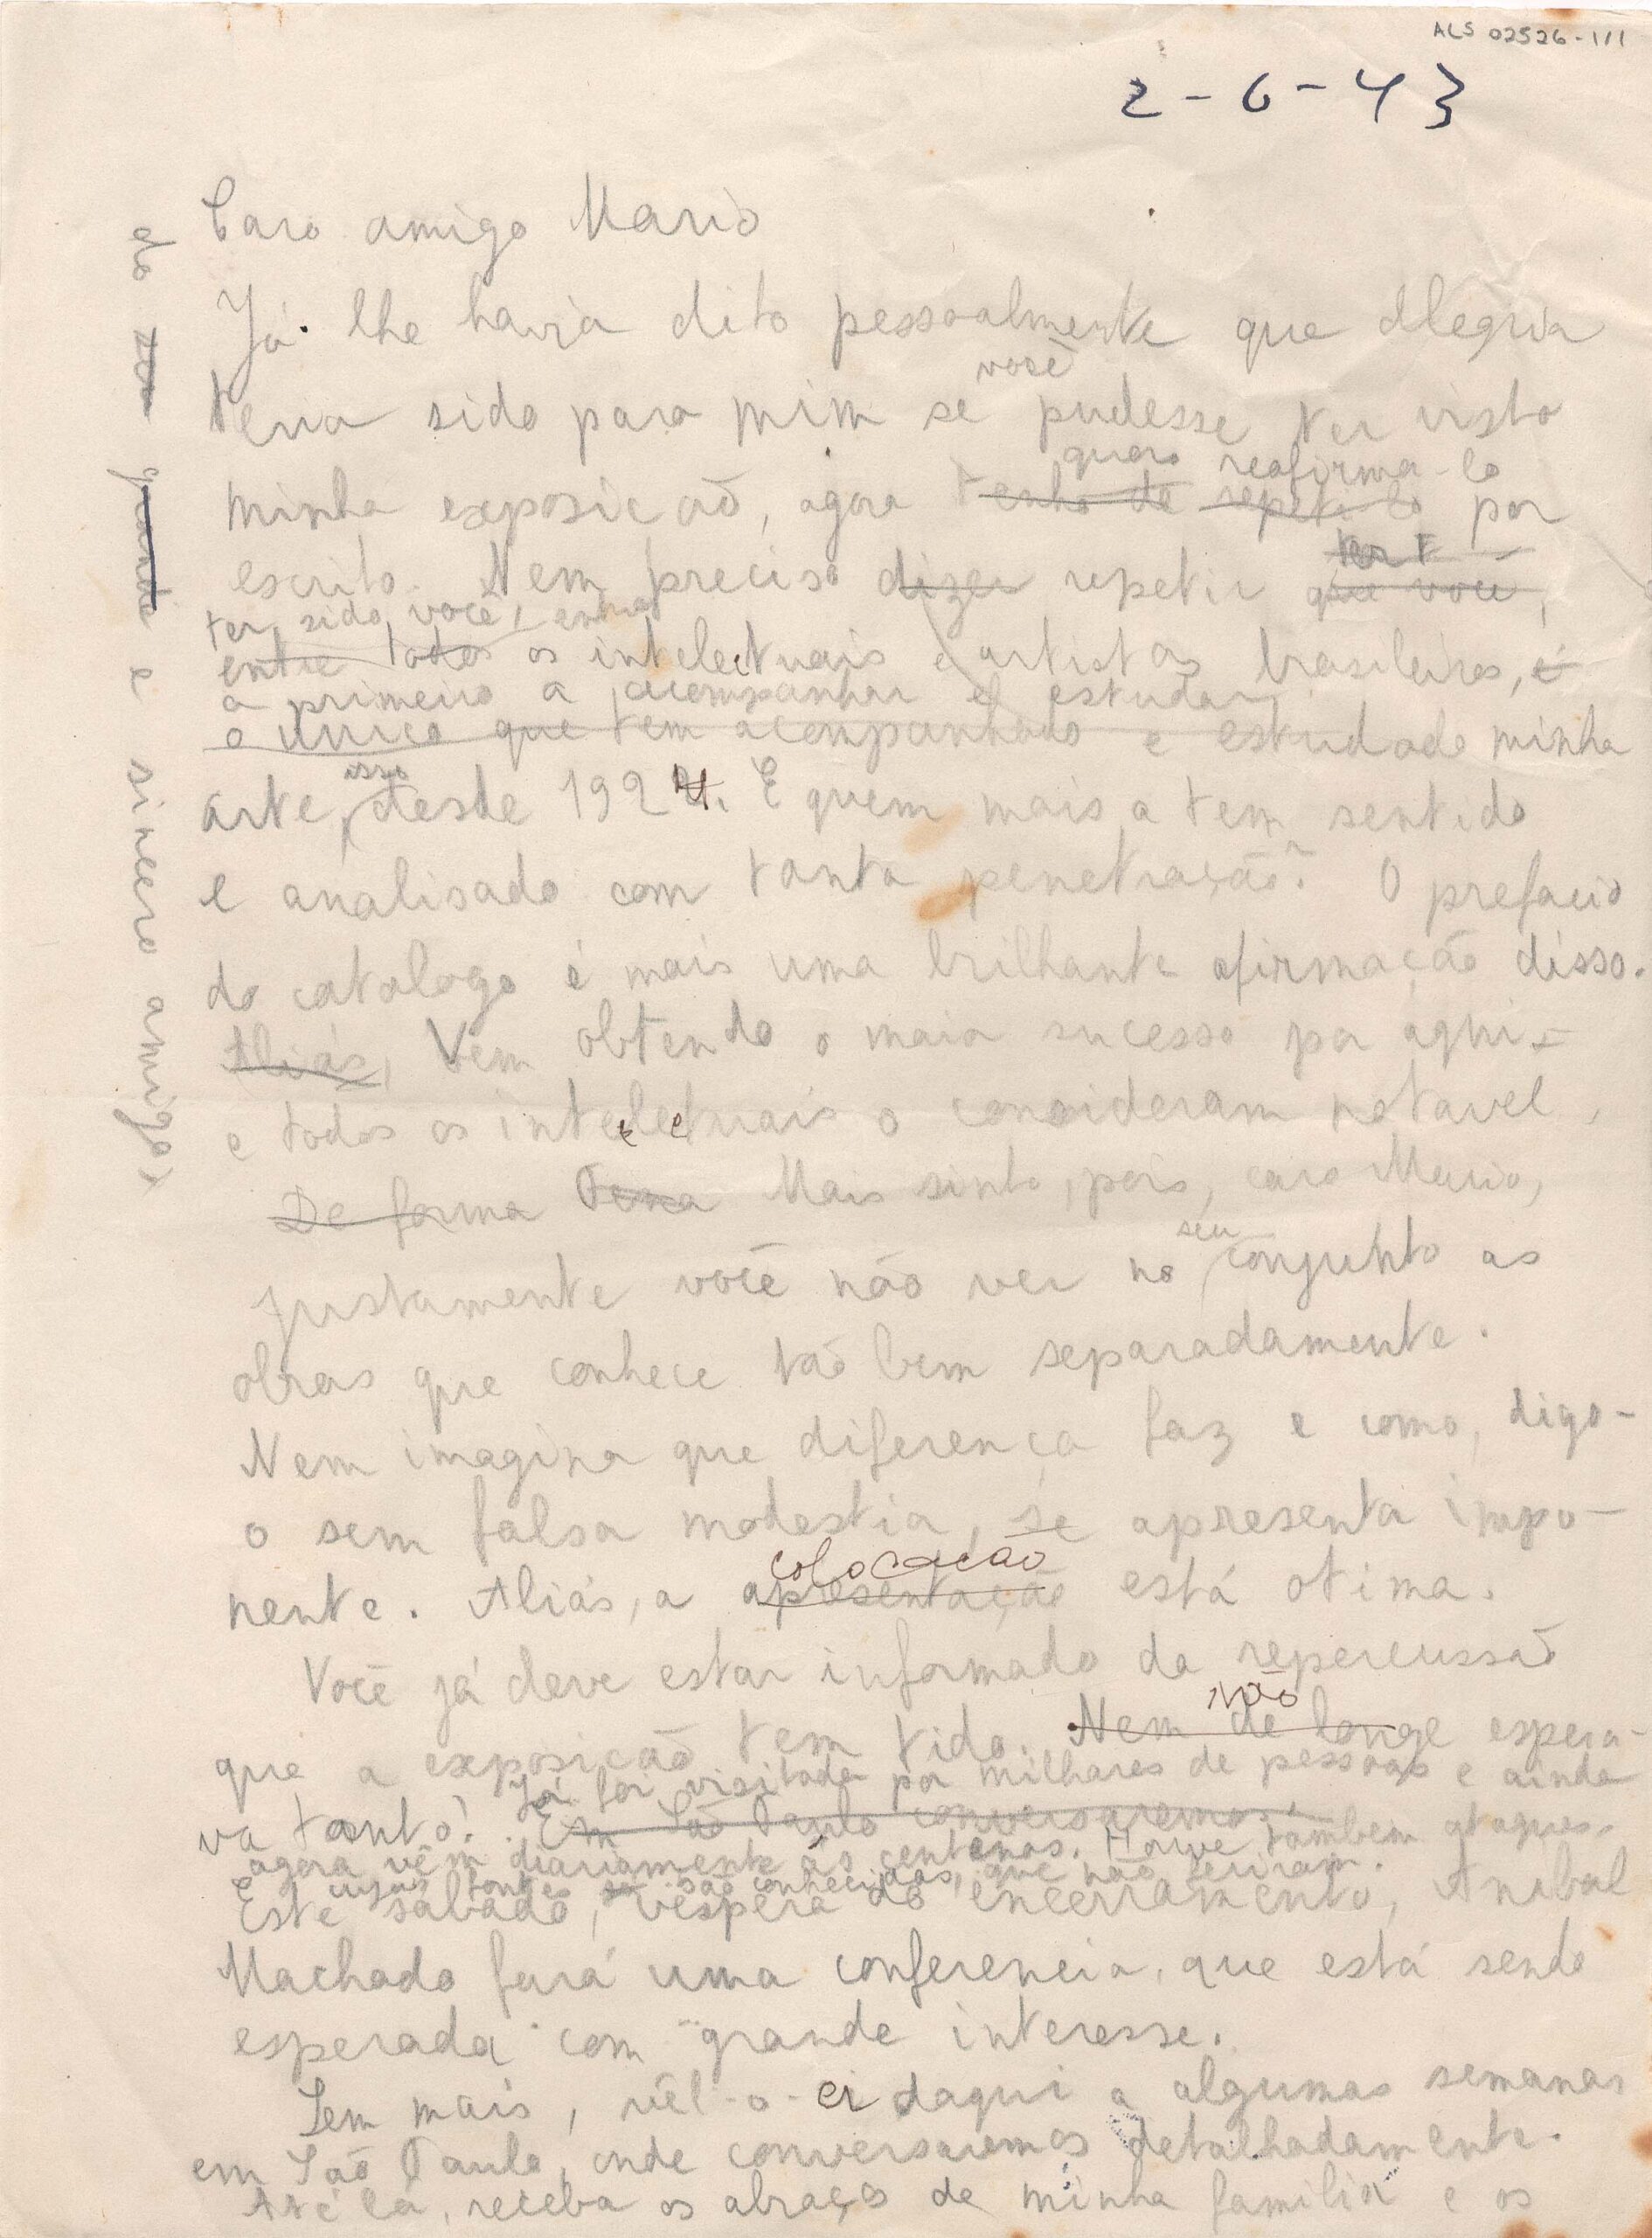 ALS 02526-1/1
2-6-43
Caro amigo Mario
Já lhe havia dito pessoalmente que alegria
você
teria sido para mim se pudesse ter visto
quero reafirma-lo
minha exposição, agora tenho de repeti-lo por
ter
escrito. Nem preciso dizer repetir que você,
ter sido você, entre
entre todos os intelectuais e artistas brasileiros, é
o primeiro a acompanhar e estudar
o único que tem acompanhado e estudado minha
isso
arte, desde 1924. E quem mais a tem sentido
e analisado com tanta penetração? O prefacio
do catalogo é mais uma brilhante afirmação disso.
Aliás, Vem obtendo o maior sucesso por aqui
e todos os intelectuais o consideram notavel.
De forma Mais sinto, pois, caro Mario,
seu
justamente você não ver no conjunto as
obras que conhece tão bem separadamente.
Nem imagina que diferença faz e como, digo-
o sem falsa modestia, se apresenta impo-
colocação
nente. Aliás, a apresentação está otima.
Você já deve estar informado da repercussão
não
que a exposição tem tido. Nem de longe espera-
Já foi visitada por milhares de pessoas e ainda
va tanto! Em São Paulo conversaremos.
agora vêm diariamente ás centenas. Houve tambem ataques,
cujas fontes são conhecidas, que não feriram.
Este sabado, vespera do encerramento, Anibal
Machado fará uma conferencia, que está sendo
esperada com grande interesse.
Sem mais, vêl-o-ei daqui a algumas semanas
em São Paulo, onde conversaremos detalhadamente.
Até lá, receba os abraços de minha familia e os
do seu grande e sincero amigo,